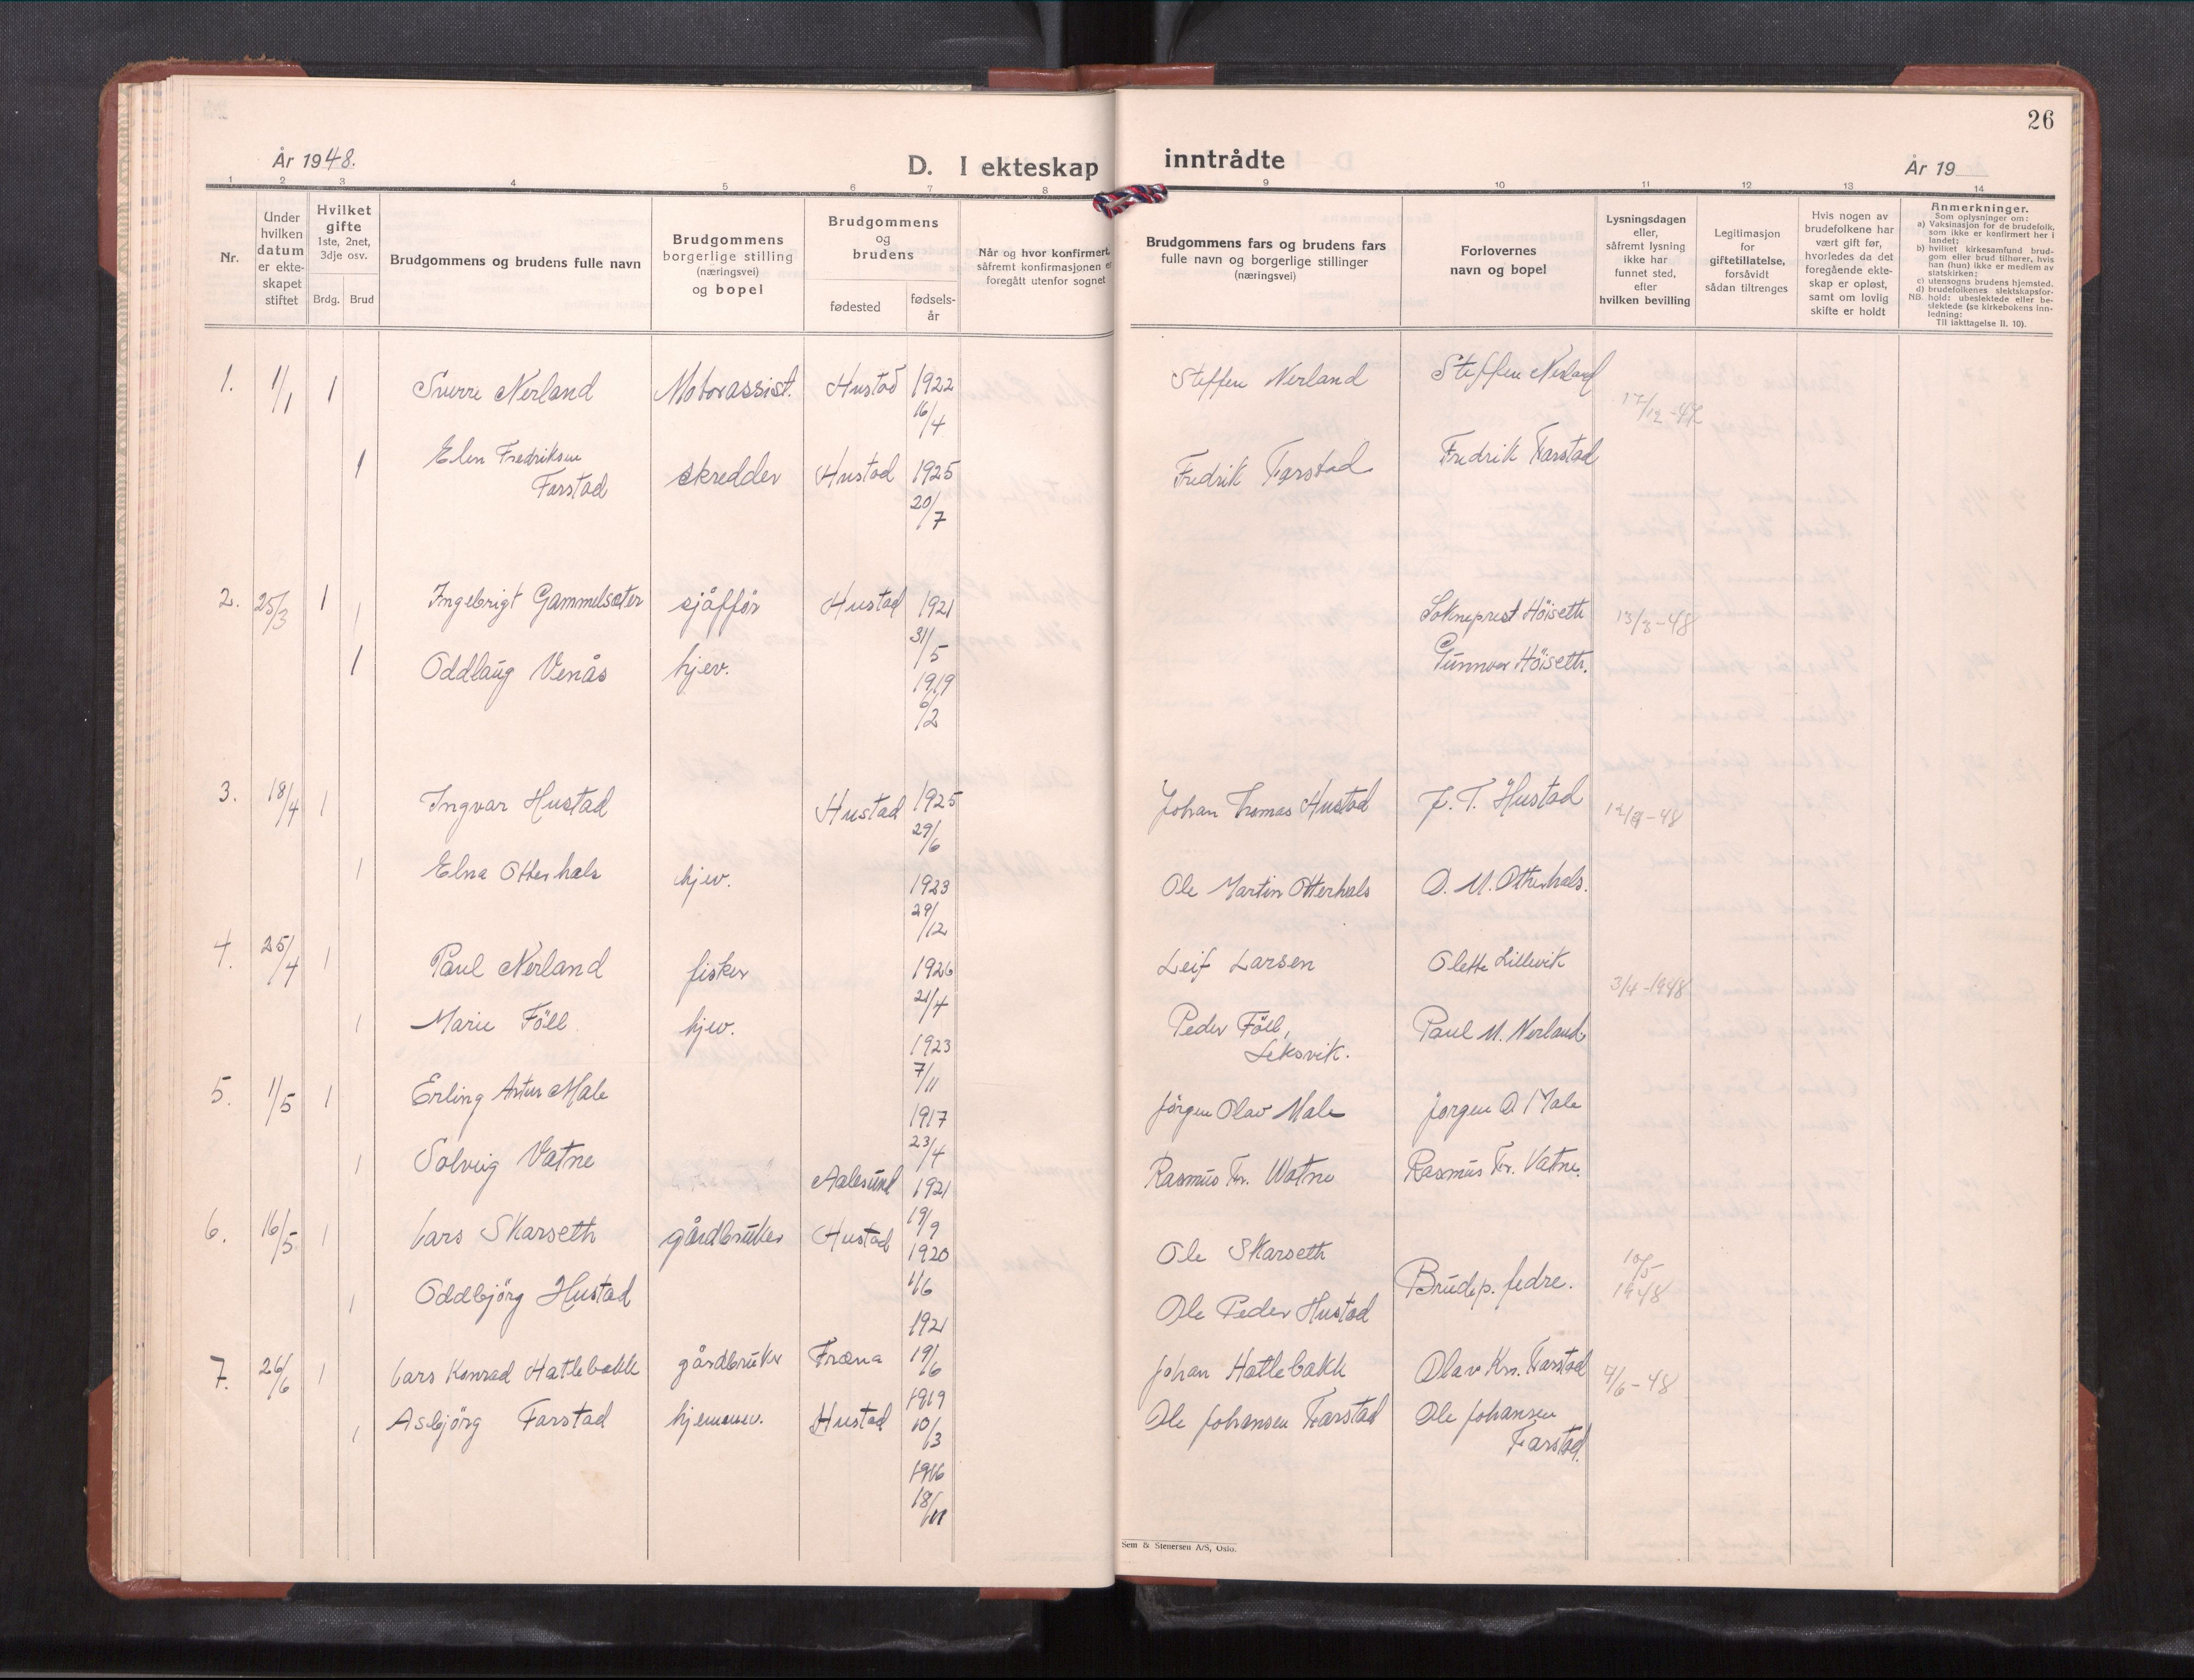 26
År 1948.
D. I ekteskap inntrådte
År 19
1 2 3 4 5 6 7 8 9 10 11 12 13 14
Nr.
Under
hvilken
datum
er ekte-
skapet
stiftet
Hvilket
gifte
1ste, 2net,
3dje osv.
Brdg. Brud
Brudgommens og brudens fulle navn
Brudgommens
borgerlige stilling
(næringsvei)
og bopel
Brudgommens
og
brudens
fødested
fødsels-
år
Når og hvor konfirmert,
såfremt konfirmasjonen er
foregått utenfor sognet
Brudgommens fars og brudens fars
fulle navn og borgerlige stillinger
(næringsvei)
Forlovernes
navn og bopel
Lysningsdagen
eller,
såfremt lysning
ikke har
funnet sted,
efter
hvilken bevilling
Legitimasjon
for
giftetillatelse,
forsåvidt
sådan tiltrenges
Hvis nogen av
brudefolkene har
vært gift før,
hvorledes da det
foregående ekte-
skap er opløst,
samt om lovlig
skifte er holdt
Anmerkninger.
Som oplysninger om:
a) Vaksinasjon for de brudefolk,
som ikke er konfirmert her i
landet;
b) hvilket kirkesamfund brud-
gom eller brud tilhører, hvis
han (hun) ikke er medlem av
statskirken;
c) utensogns brudens hjemsted.
d) brudefolkenes slektskapsfor-
NB hold: ubeslektede eller be-
slektede (se kirkebokens inn-
ledning:
Til iakttagelse II. 10).
1. 1/1 1 Sverre Nerland Motorassist. Hustad 1922 Steffen Nerland Steffen Nerland
16/4 17/12-47
1 Elen Fredriksen
Farstad skredder Hustad 1925 Fredrik Farstad Fredrik Farstad
20/7
2. 25/3 1 Ingebrigt Gammelsæter sjåffør Hustad 1921 Sokneprest Höiseth 13/3-48
31/5
1 Oddlaug Venås hjev. 1919 Gunnvor Höiseth.
6/2
3. 18/4 1 Ingvar Hustad Hustad 1925 Johan Thomas Hustad J. T. Hustad
29/6
1 Elna Otterhals hjev. 1923 Ole Martin Otterhals O. M. Otterhals.
29/12
4. 25/4 1 Paul Nerland fisker 1926 Leif Larsen Olette Lillevik
21/4 3/4-1948
1 Marie Föll hjev. 1923 Peder Föll,
Leksvik. Paul M. Nerland
7/11
5. 1/5 1 Erling Artur Male 1917 Jörgen Olav Male Jörgen O Male
23/4
1 Solveig Vatne Aalesund 1921 Rasmus Kr. Watne Rasmus Kr. Vatne.
19/9
6. 16/5 1 Lars Skarseth gårdbruker Hustad 1920 Ole Skarseth Brudep. fedre. 10/5
1948
1/6
1 Oddbjörg Hustad 1921 Ole Peder Hustad
19/6
7. 26/6 1 Lars Konrad Hatlebakk gårdbruker Fræna 1919 Johan Hatlebakk Olav Kr. Farstad 7/6-48
10/3
1 Asbjörg Farstad hjemmev. Hustad 1916 Ole Johansen Farstad Ole Johansen
Farstad.
18/11
Sem & Stenersen A/S, Oslo.